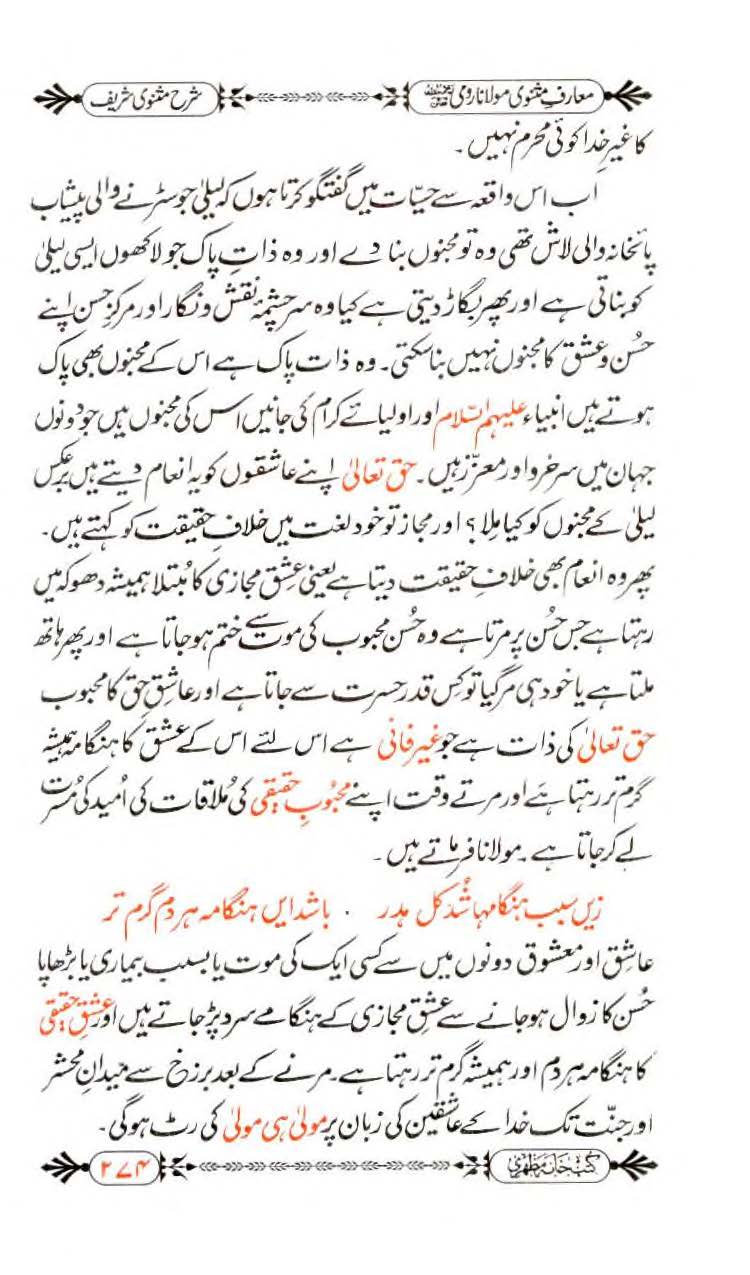 معارفِ مثنوی مولانا رومی رحمۃ اللہ علیہ
شرح مثنوی شریف
کا غیرِ خدا کوئی محرم نہیں۔
اب اس واقعہ سے حسیّات میں گفتگو کرتا ہوں کہ لیلیٰ جو سڑنے والی پیشاب
پائخانہ والی لاش تھی وہ تو مجنوں بنا دے اور وہ ذاتِ پاک جو لاکھوں ایسی لیلیٰ
کو بناتی ہے اور پھر بگاڑ دیتی ہے کیا وہ سرچشمۂ نقش و نگار اور مرکزِ حسن اپنے
حُسن و عشق کا مجنوں نہیں بنا سکتی۔ وہ ذات پاک ہے اس کے مجنوں بھی پاک
ہوتے ہیں انبیاء علیہم السّلام اور اولیائے کرام کی جانیں اس کی مجنوں ہیں جو دونوں
جہان میں سرخرو اور معزّز ہیں۔ حق تعالیٰ اپنے عاشقوں کو یہ انعام دیتے ہیں برعکس
لیلیٰ کے مجنوں کو کیا مِلا؟ اور مجاز تو خود لغت میں خلافِ حقیقت کو کہتے ہیں۔
پھر وہ انعام بھی خلافِ حقیقت دیتا ہے یعنی عشقِ مجازی کا مُبتلا ہمیشہ دھوکہ میں
رہتا ہے جس حُسن پر مرتا ہے وہ حُسن محبوب کی موت سے ختم ہوجاتا ہے اور پھر ہاتھ
ملتا ہے یا خود ہی مرگیا تو کِس قدر حسرت سے جاتا ہے اور عاشقِ حق کا محبوب
حق تعالیٰ کی ذات ہے جو غیر فانی ہے اس لئے اس کے عشق کا ہنگامہ ہمیشہ
گرم تر رہتا ہے اور مرتے وقت اپنے محبُوبِ حقیقی کی مُلاقات کی اُمید کی مُسرت
لے کر جاتا ہے۔ مولانا فرماتے ہیں۔
زیں سبب ہنگامہا شُد کل ہدر ۔ باشد ایں ہنگامہ ہر دم گرم تر
عاشق اور معشوق دونوں میں سے کسی ایک کی موت یا بسبب بیماری یا بڑھاپا
حُسن کا زوال ہوجانے سے عشقِ مجازی کے ہنگامے سرد پڑجاتے ہیں اور عشقِ حقیقی
کا ہنگامہ ہر دم اور ہمیشہ گرم تر رہتا ہے۔ مرنے کے بعد برزخ سے میدانِ محشر
اور جنّت تک خدا کے عاشقین کی زبان پر مولیٰ ہی مولیٰ کی رٹ ہوگی۔
کتب خانہ مظہری
۲۷۴